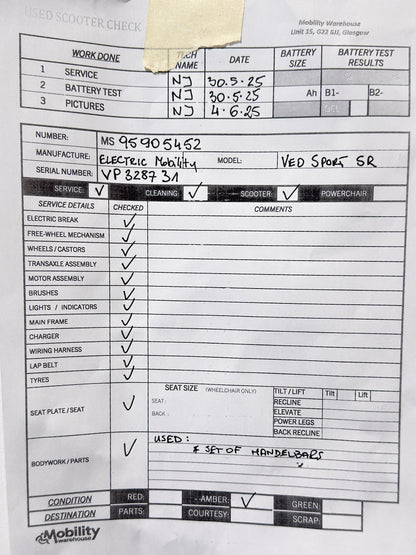 USED SCOOTER CHECK
Mobility Warehouse
Unit 15, G22 6JJ, Glasgow
WORK DONE TECH NAME DATE BATTERY SIZE BATTERY TEST RESULTS
1 SERVICE NJ 30.5.25
2 BATTERY TEST NJ 30.5.25 Ah B1- B2-
3 PICTURES NJ 4.6.25
NUMBER: MS 95905452
MANUFACTURE: ELECTRIC Mobility MODEL: VED SPORT SR
SERIAL NUMBER: VP 328731
SERVICE: ✓ CLEANING: ✓ SCOOTER: ✓ POWERCHAIR
SERVICE DETAILS CHECKED COMMENTS
ELECTRIC BREAK ✓
FREE-WHEEL MECHANISM ✓
WHEELS / CASTORS ✓
TRANSAXLE ASSEMBLY ✓
MOTOR ASSEMBLY ✓
BRUSHES ✓
LIGHTS / INDICATORS ✓
MAIN FRAME ✓
CHARGER ✓
WIRING HARNESS ✓
LAP BELT ✓
TYRES ✓
SEAT PLATE / SEAT ✓ SEAT SIZE (WHEELCHAIR ONLY) TILT / LIFT Tilt Lift
SEAT: RECLINE
BACK: ELEVATE
POWER LEGS
BACK RECLINE
BODYWORK / PARTS ✓ USED:
* SET OF MANDELBARS
CONDITION RED: AMBER: ✓ GREEN:
DESTINATION PARTS: COURTESY: SCRAP:
Mobility
warehouse